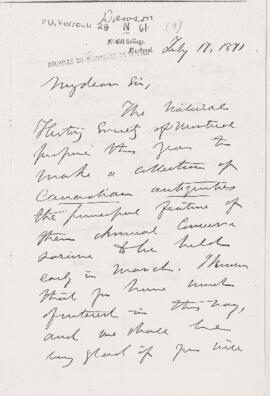 P.V. Verreau
Dawson
28 N 61. (9)
McGill College
Montreal
ARCHIVES DU SÉMINAIRE DE
Feby 17, 1871
My dear Sir,
The Natural
History Society of Montreal
propose this year to
make a collection of
Canadian antiquities
the principal feature of
their Annual Conver
sazione to be held
early in March. I know
that you have much
of interest in this way,
and we shall be
very glad if you will